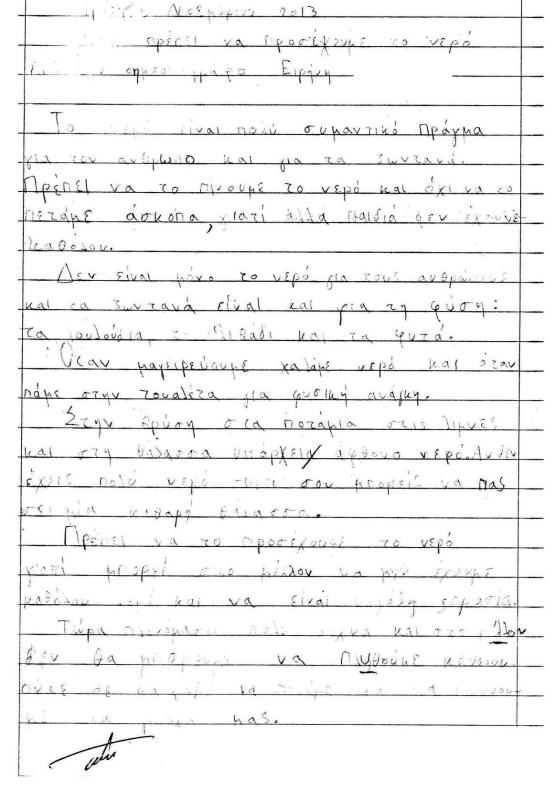 Νοεμβρίου 2013
πρέπει να προσέχουμε το νερό
δημοσιογράφο Ειρήνη
Το νερό είναι πολύ συμαντικό Πράγμα
για τον ανθρωπο και για τα ζωντανά.
Πρέπει να το πίνουμε το νερό και όχι να το
πετάμε άσκοπα, γιατί άλλα παιδιά δεν έχουνε
καθόλου.
Δεν είναι μόνο το νερό για τους ανθρώπους
και τα ζωντανά είναι και για τη φύση:
τα λουλούδια, το λιβάδι και τα φυτά.
Όταν μαγειρεύουμε χαλάμε νερό και όταν
πάμε στην τουαλέτα για φυσική ανάγκη.
Στην βρύση στα ποτάμια στις λίμνες
και στη θάλασσα υπάρχει άφθονο νερό. Αν δεν
έχεις πολύ νερό σπίτι σου μπορείς να πας
σε μία καθαρή θάλασσα.
Πρέπει να το προσέχουμε το νερό
γιατί μπορεί στο μέλλον να μην έχουμε
καθόλου και να είναι
Τώρα και στο μέλλον
δεν θα μπορούμε να πλυθούμε
ούτε σε να
με τα μας.